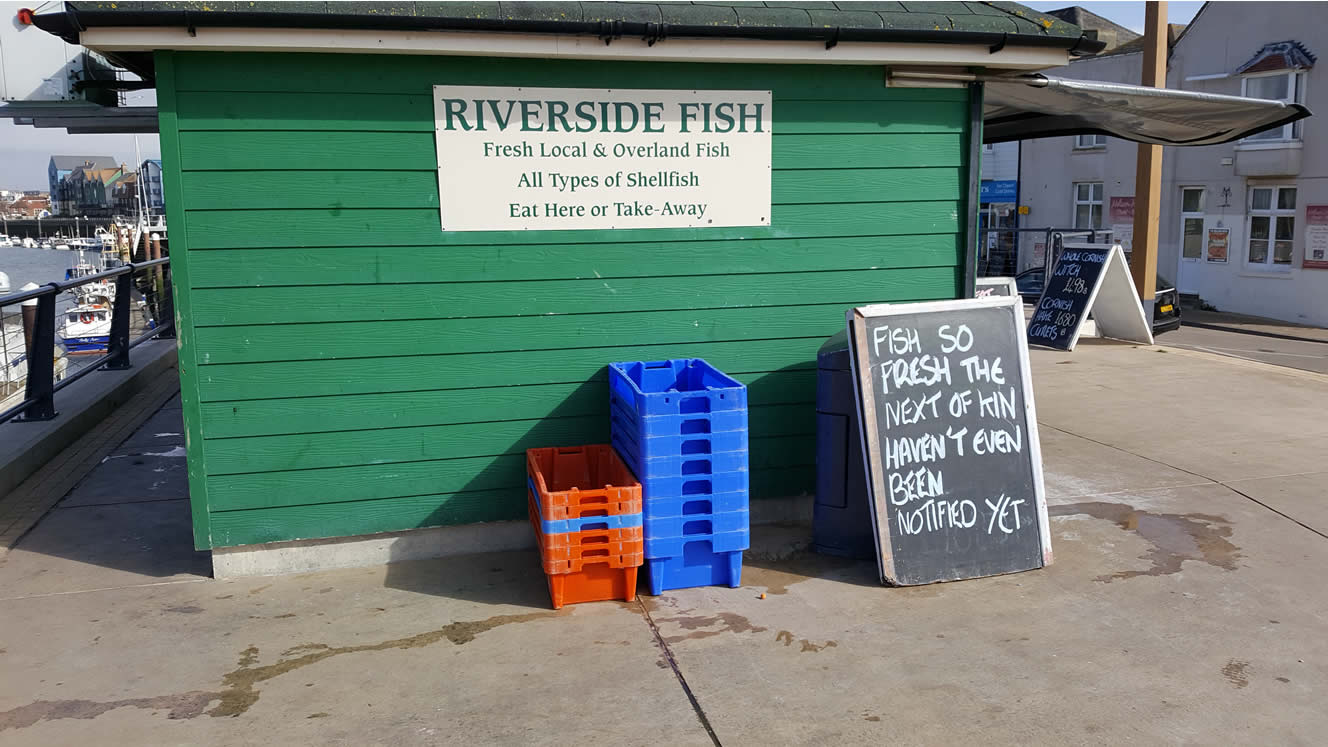 RIVERSIDE FISH
Fresh Local & Overland Fish
All Types of Shellfish
Eat Here or Take-Away
WHOLE CORNISH
WITCH
CORNISH
HAKE
FISH SO
FRESH THE
NEXT OF KIN
HAVEN'T EVEN
BEEN
NOTIFIED YET